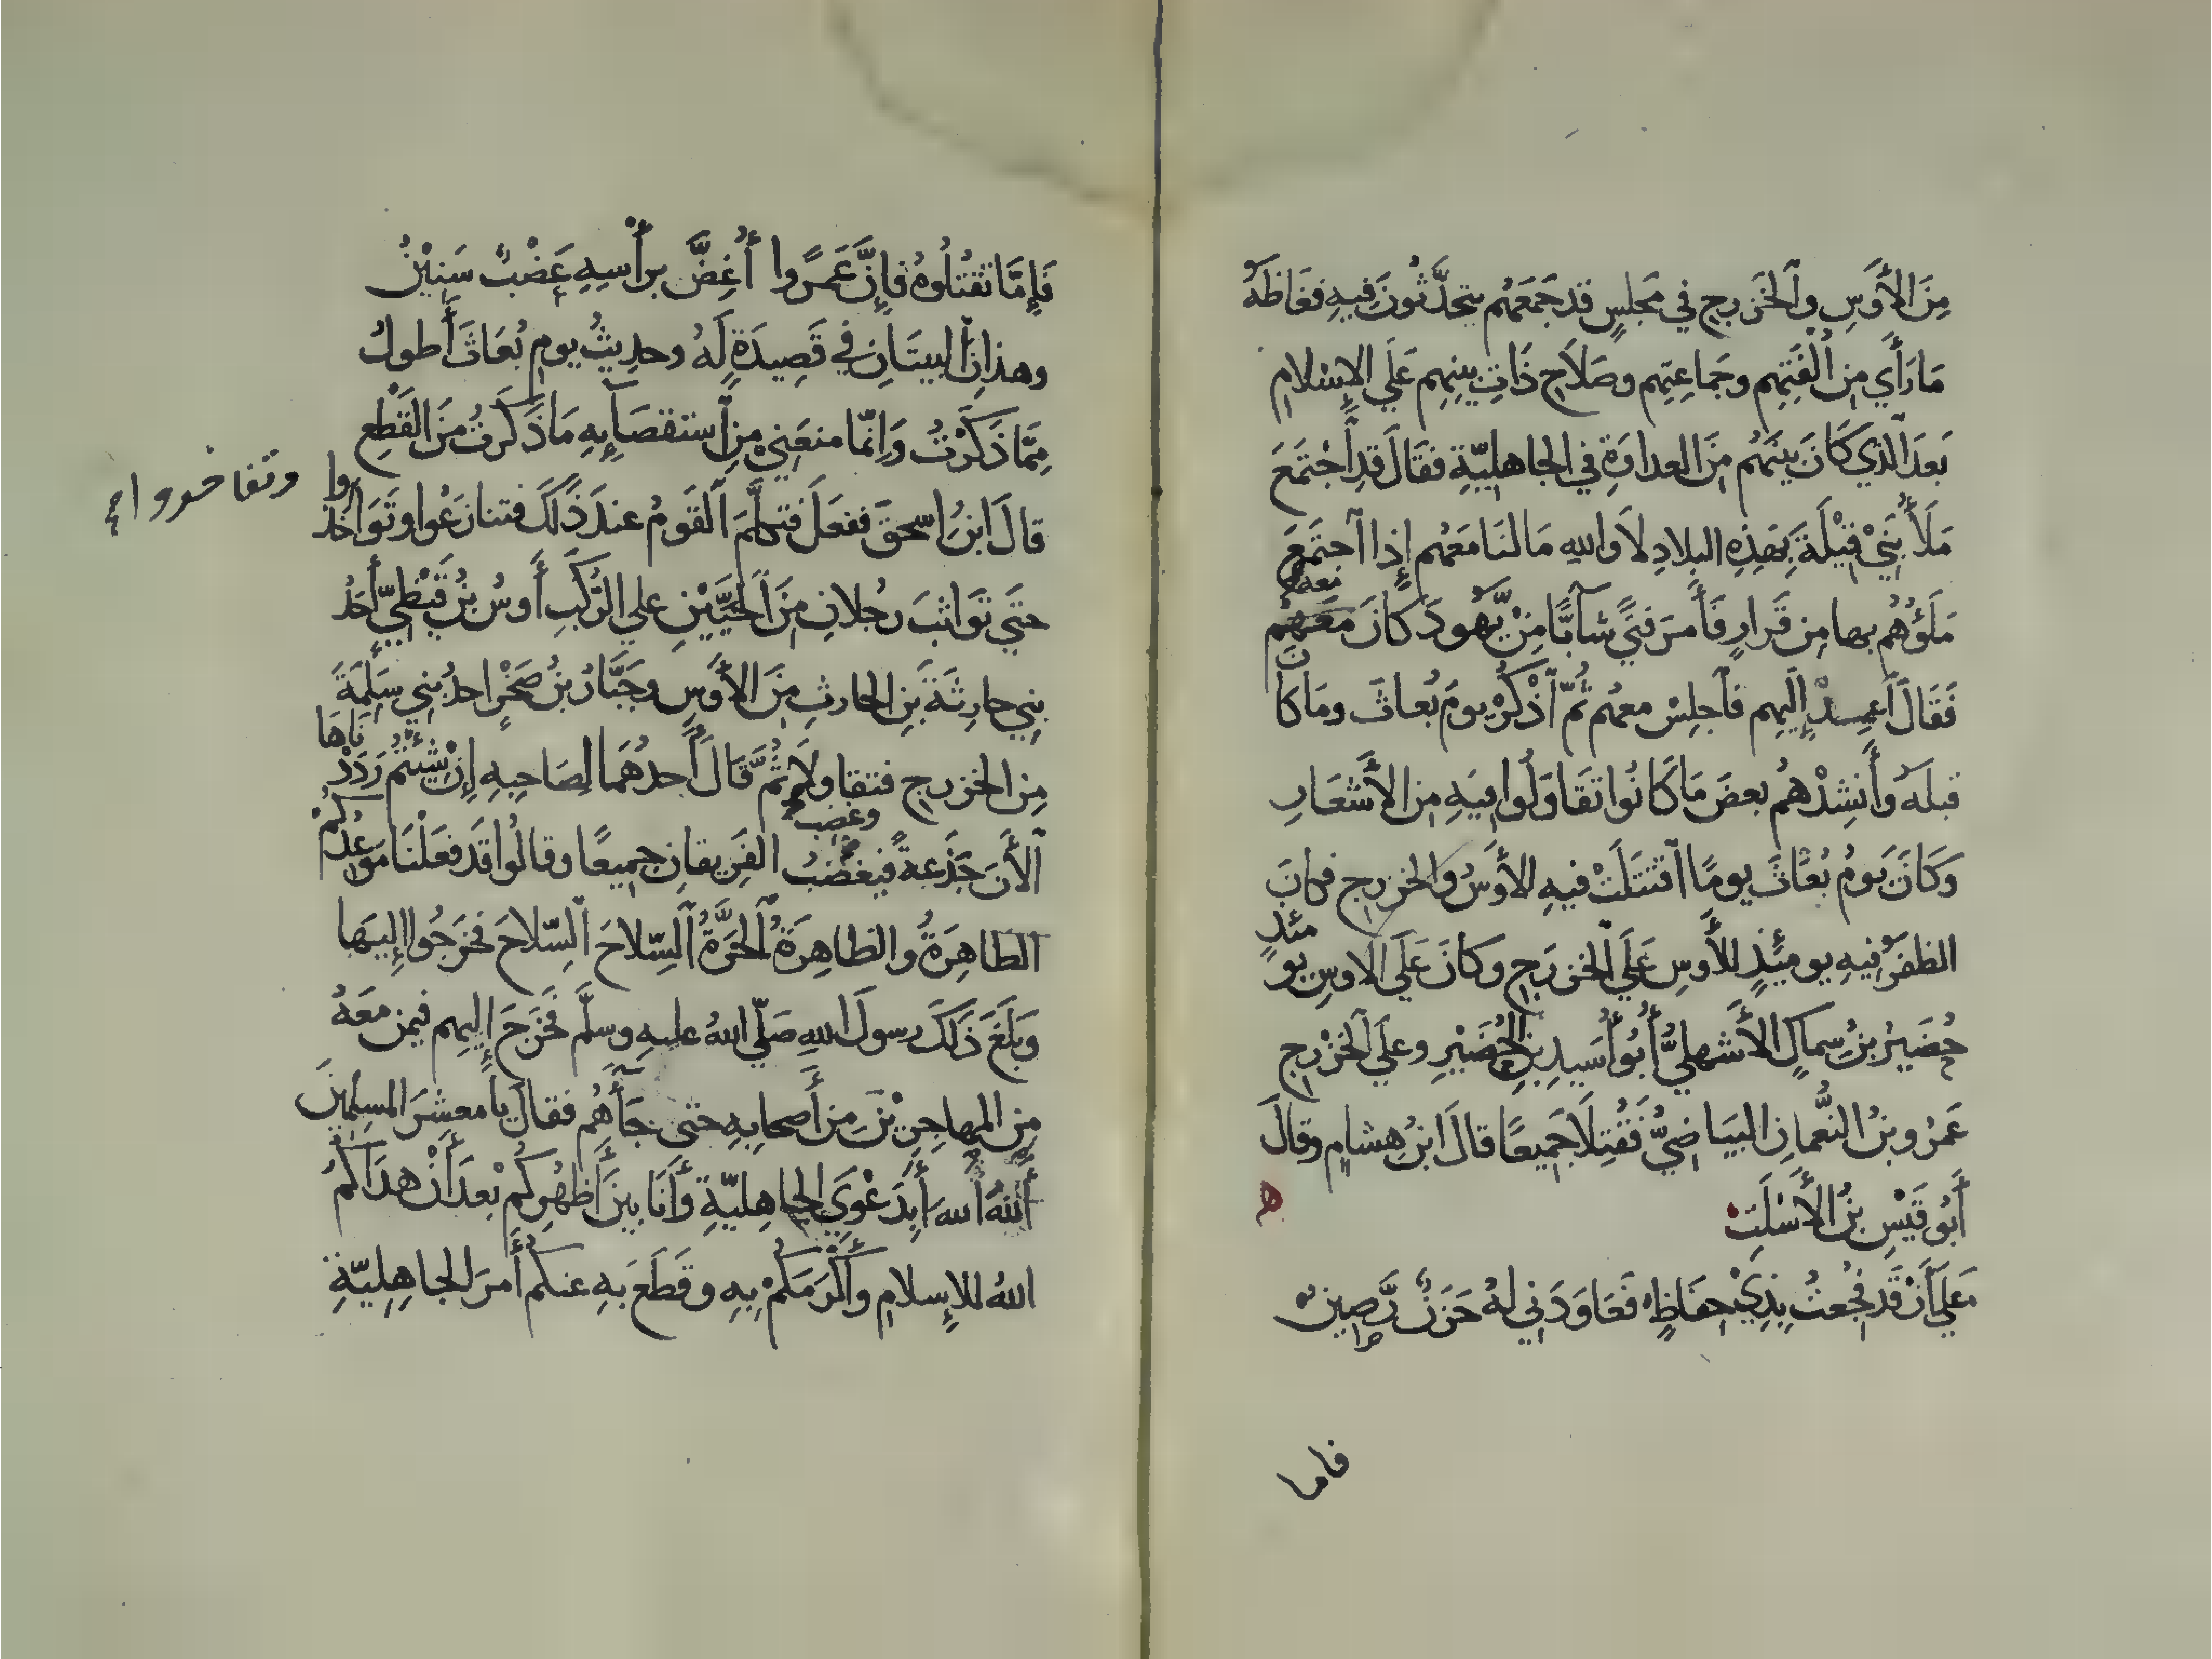 مِنَ الأَوسِ وٱلخزرج في مَجلسٍ قد جَمَعَهُم يتحدَّثُونَ فِيهِ فغاظَهُ
مَا رَأَي مِن أُلْفَتِهِم وجَمَاعِتِهم وصَلَاحِ ذَاتِ بينِهِم عَلَي الإسْلامِ
بَعدَ ٱلَّذي كَانَ بينَهُم مِنَ العداوَةِ في الجاهِليّةِ فقَالَ قدِ ٱجْتَمَعَ
مَلَأُ بَنِيْ قَيْلَةَ بِهَذِهِ البلادِ لَا والله مَا لنَا مَعَهُم إذا ٱجتَمَعَ
مَلَؤُهُم بها مِن قَرارٍ فَأَمرَ فتًي شآبًّا مِنْ يَّهُودَ كانَ مَعَهُم معه
فَقَالَ ٱعمِدْ إليهِم فٱجلِسْ معهُم ثُمّ ٱذْكُرْ يومَ بُعاثَ ومَا كان
قبلَهُ وأَنشِدْهُم بعضَ مَا كَانُوا تقَاوَلُوا فِيهِ مِن الأَشعَارِ
وَكَانَ يَومُ بُعَاثَ يومًا ٱقتتَلَتْ فيهِ الأَوسُ والخزرج فكانَ
الظفَرُ فِيهِ يومَئذٍ للأَوسِ عَلَي ٱلخزرَج وكانَ عَلَي الاوسِ يومئذٍ
حُضَيرُ بنُ سِماكٍ الأَشهليُّ أَبُو أُسَيدِ بنِ الحُضَيْرِ وعلَي ٱلخزْرج
عَمرُو بنُ النُّعمانِ البيَاضيُّ فَقُتِلَا جَمِيعًا قالَ ابنُ هِشامٍ وقالَ
أَبُو قَيْسِ بنُ الأَسْلَتِ
عَلَي أَنْ قَد فُجِعتُ بِذِيْ حِفَاظٍ فَعَاوَدَنِي لهُ حَزَنٌ رَّصِينٌ
فاما
فَإِمَّا تقتُلُوهُ فإِنَّ عَمرًوا أُغِضَّ برأْسِهِ عَضْبٌ سَنِيْنُ
وهذانِ ٱلبيتَانِ في قَصِيدَةٍ لَهُ وحديثُ يومِ بُعَاثَ أَطولُ
مِمَّا ذَكَرْتُ وَإِنّما منعَنِيْ مِنِ ٱستقصَآئِهِ مَا ذَكَرتُ مِنَ القَطْعِ
قالَ ابنُ اسحقَ ففعَلَ فتكلَّمَ ٱلقَومُ عندَ ذَلكَ فتنازَعُوا وتَوَاخذوا وتفاخروا
حتَي تَوَاثبَ رجُلانِ مِنَ ٱلحَيَّيْنِ علي الرُّكَبِ أَوسُ بنُ قَيْظيّ أَحَدُ
بنِي حارِثَةَ بنِ الحارثِ مِنَ الأَوسِ وجَبَّارُ بنُ صَخْرٍ احدُ بنِي سَلِمَةَ
مِن الخزرج فتقاولَا ثُمَّ قَالَ أَحدُهُما لِصَاحِبهِ إنْ شِئتُم رَدَدْنَاهَا
ٱلأَنَ جَذَعَةً فيغضَبُ وغضب الفَرِيقانِ جمِيعًا وقالُوا قَد فعَلْنَا مَوعِدُكُمُ
الظاهِرَةُ والظاهِرَةُ ٱلحَرَّةُ ٱلسِّلاحَ ٱلسِّلاحَ فخرَجُوا إليهَا
وَبَلَغَ ذَلَكَ رسولَ اللهِ صَلّي اللهُ عليهِ وسلَّم فَخرَجَ إليهِم فيمن معَهُ
مِن المهاجِرِيْنَ مِن أَصحابِهِ حتى جَآءَهُم فقالَ يا معشِرَ المسلِمِينَ
أَللهَ ٱللهَ أَبِدَعْوَي الجاهِليّةِ وأَنَا بينَ أَظهُرِكُمْ بَعْدَ أَنْ هدَاكُمُ
اللهُ للإِسلامِ وأَكرَمَكُمْ بِهِ وقَطَعَ بَهِ عنكُم أَمرَ الجاهِلِيّةِ